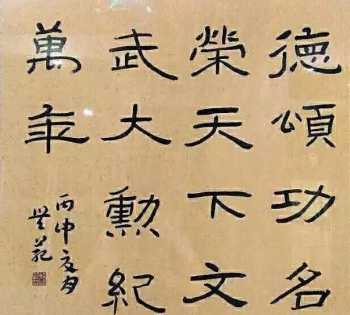 德頌功名
榮天下文
武大勳紀
萬年
丙申夏月